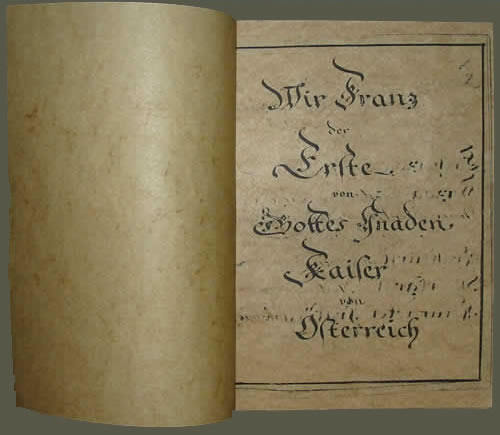 Wir Franz
der
Erste
von
Gottes Gnaden
Kaiser
von
Österreich